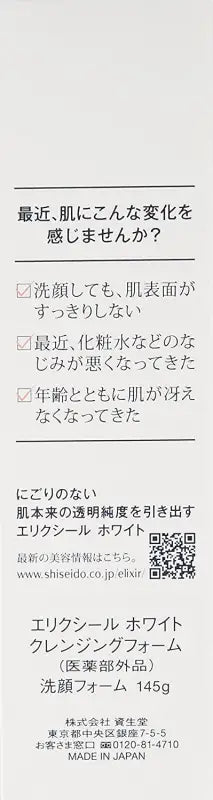 最近、肌にこんな変化を
感じませんか？
洗顔しても、肌表面が
すっきりしない
最近、化粧水などのな
じみが悪くなってきた
年齢とともに肌が冴え
なくなってきた
にごりのない
肌本来の透明純度を引き出す
エリクシール ホワイト
最新の美容情報はこちら。
www.shiseido.co.jp/elixir/
エリクシール ホワイト
クレンジングフォーム
（医薬部外品）
洗顔フォーム 145g
株式会社 資生堂
東京都中央区銀座7-5-5
お客さま窓口 0120-81-4710
MADE IN JAPAN